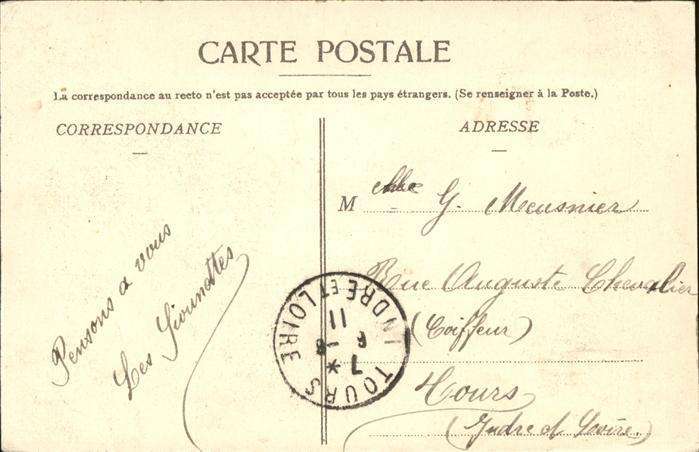 CARTE POSTALE
La correspondance au recto n'est pas acceptée par tous les pays étrangers. (Se renseigner à la Poste.)
CORRESPONDANCE
Pensons a vous
Les
ADRESSE
M elle G. Meusnier
Rue Auguste Chevalier
(Coiffeur)
Tours
(Indre et Loire)
TOURS * INDRE ET LOIRE
7
6 - 8
11